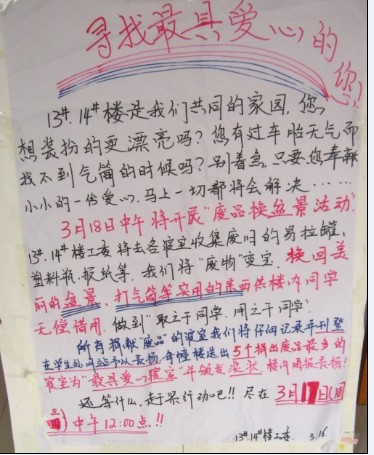 寻找最具爱心的
您!
13#.14#楼是我们共同的家园,您
想装扮的更漂亮吗?您有过车胎无气而
找不到气筒的时候吗?别着急,只要您奉献
小小的一份爱心,马上一切都将会解决……
3月18日中午将开展"废品换盆景活动".
13#.14#楼工委将去各寝室收集废旧的易拉罐,
塑料瓶.报纸等.我们将"废物"变宝,换回美
丽的盆景、打气筒等实用的东西供楼内同学
无偿借用.做到"取之于同学.用之于同学".
所有捐献"废品"的寝室我们将仔细记录并刊登
在学生的网站予以表扬.每幢楼选出5个捐出废品最多的
寝室为"最具爱心寝室"并颁发奖状,楼内通报表扬!
还等什么,赶快行动吧!!尽在3月17日(周
三)中午12:00点.!!
13#.14#楼工委 3.16